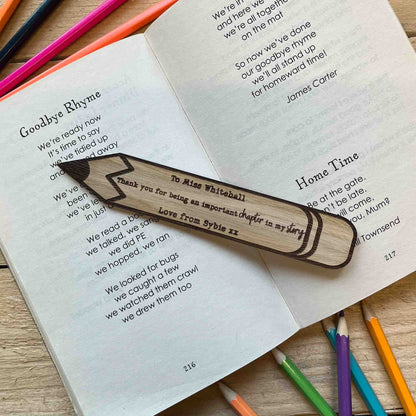 Goodbye Rhyme
We're ready now
It's time to say
we've tidied up
away
We've
we
in just
We read a
we talked, we
we did PE
we hopped, we ran
We looked for bugs
we caught a few
we watched them crawl
we drew them too
216
To Miss Whitehall
Thank you for being an important chapter in my story
Love from Sybie xx
We're in
and here we
we're all together
on the mat
So now we've done
our goodbye rhyme
we'll all stand up
for homeward time!
James Carter
Home Time
Be at the gate.
be late.
will come.
you, Mum?
Townsend
217